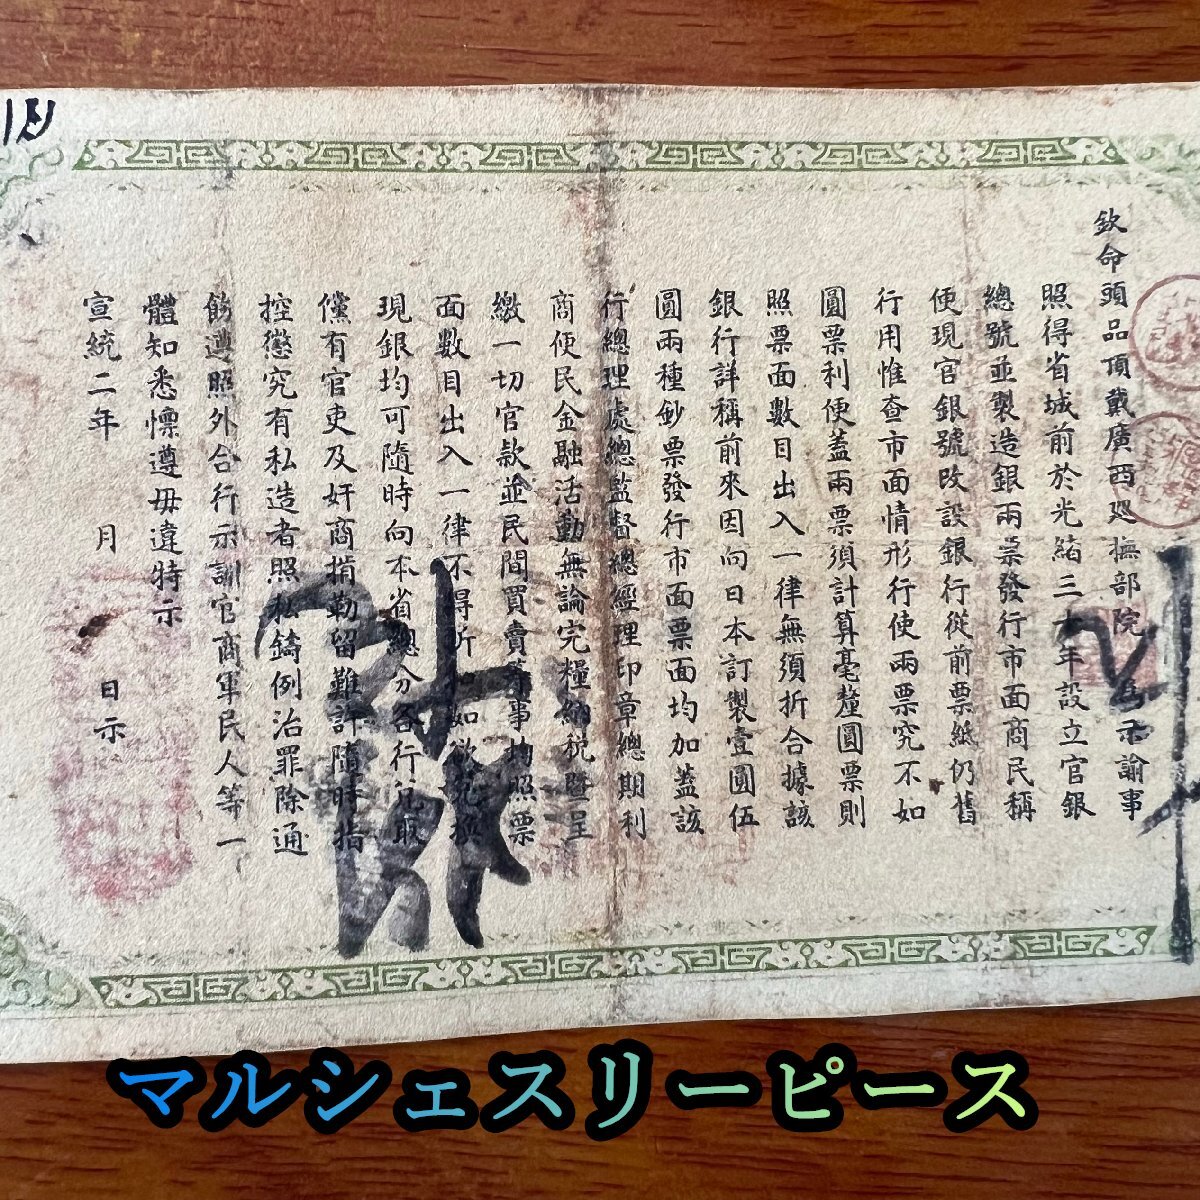 欽命頭品頂戴廣西廵撫部院為示諭事
照得省城前於光緒三十年設立官銀
總號並製造銀兩票發行市面商民稱
便現官銀號改設銀行從前票紙仍舊
行用惟查市面情形行使兩票究不如
圓票利便蓋兩票須計算毫釐圓票則
照票面數目出入一律無須折合據該
銀行詳稱前來因向日本訂製壹圓伍
圓兩種鈔票發行市面票面均加蓋該
行總理處總監督總經理印章總期利
商便民金融活動無論完糧納税暨呈
繳一切官款並民間買賣等事均照票
面數目出入一律不得折如欲兌換
現銀均可隨時向本省總分各行兌取
儻有官吏及奸商掯勒留難許隨時指
控懲究有私造者照私鑄例治罪除通
飭遵照外合行示訓官商軍民人等一
體知悉懍遵毋違特示
宣統二年 月 日示
マルシェスリーピース